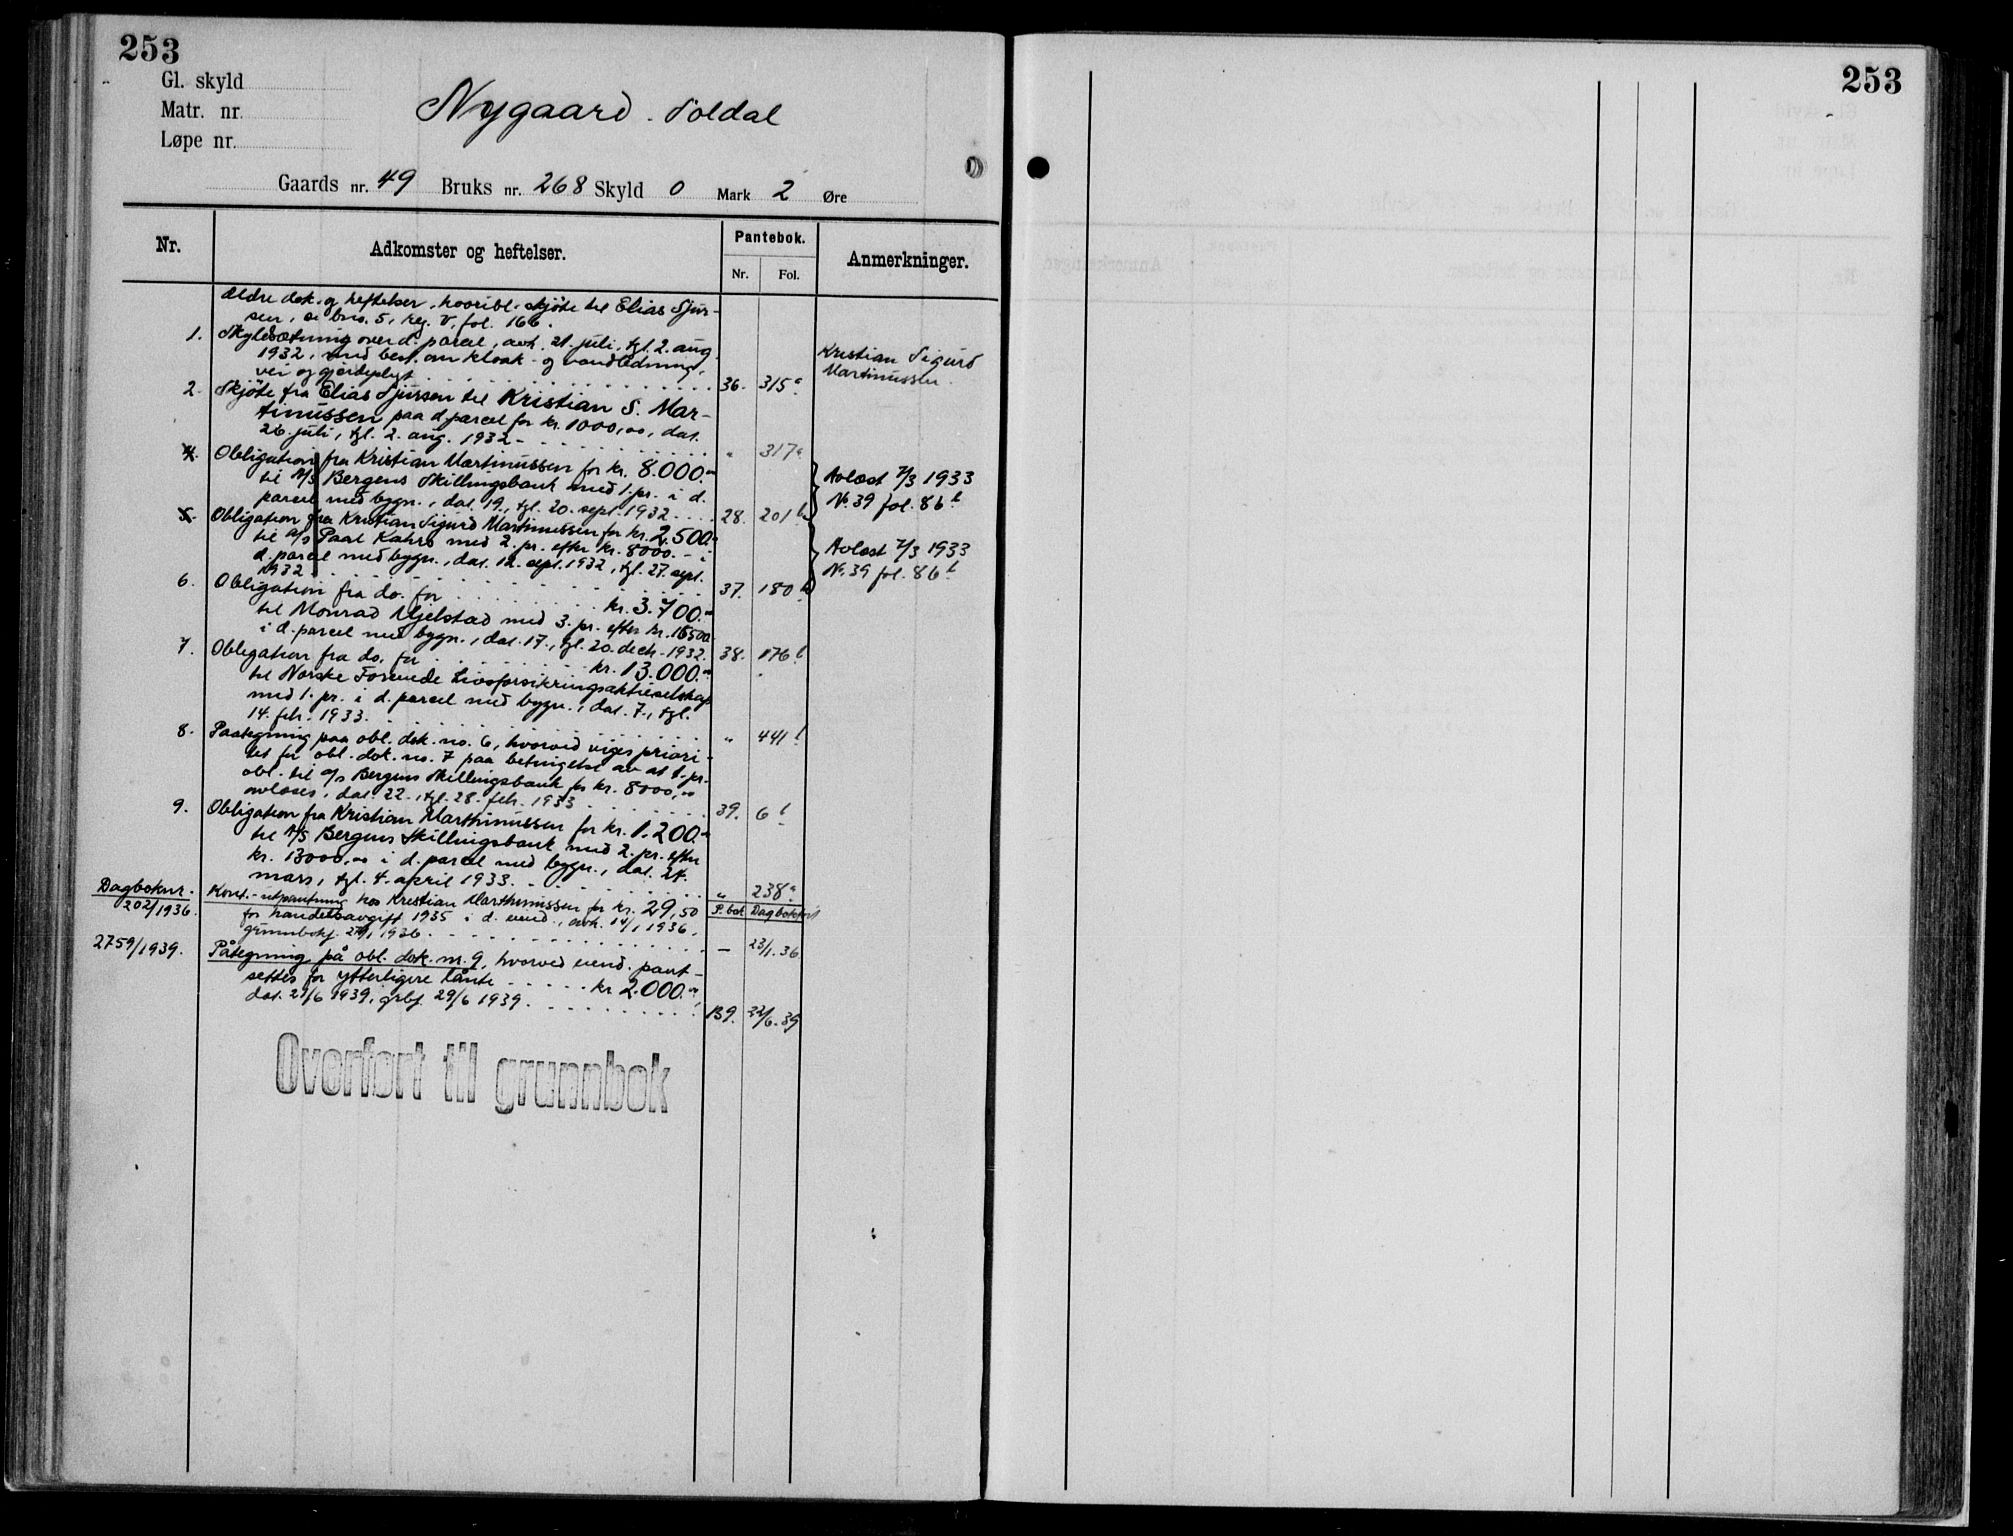 253
Gl. skyld
Matr. nr.
Løpe nr.
Nygaard. Soldal
Gaards nr. 49 Bruks nr. 268 Skyld 0 Mark 2 Øre
Nr.
Adkomster og heftelser.
Pantebok.
Nr. Fol.
Anmerkninger.
Ældre dok. og heftelser, hvoribl. skjøte til Elias Sjur-
sen, se brno. 5, reg. V, fol. 166.
1. Skyldsætning over d. parcel, avh. 21. juli, tgl. 2. aug.
1932, med best. om kloak- og vandledning,
vei og gjerdeplygt 36. 315a
Kristian Sigurd
Martinussen
2. Skjøte fra Elias Sjursen til Kristian S. Mar-
tinussen paa d. parcel for kr. 1000,00, dat.
26. juli, tgl. 2. aug. 1932 - " 317a
4. Obligation fra Kristian Martinussen for kr. 8.000.00
til A/S Bergens Skillingsbank med 1. pr. i d.
parcel med bygn., dat. 19., tgl. 20. sept. 1932 28. 201b
Avlæst 7/3 1933
No. 39 fol. 86b
5. Obligation fra Kristian Sigurd Martinussen for kr. 2,500.00
til A/S Paal Kahrs med 2. pr. efter kr. 8000.- i
d. parcel med bygn., dat. 12. sept. 1932, tgl. 27. sept.
1932 37. 180b
Avlæst 7/3 1933
No. 39 fol. 86b
6. Obligation fra do. for kr. 3.700.00
til Monrad Mjelstad med 3. pr. efter kr. 10500
i d. parcel med bygn., dat. 17., tgl. 20. decb. 1932. 38. 176b
7. Obligation fra do. for kr. 13.000.00
til Norske Forenede Livsforsikringsaktieselskap
med 1. pr. i d. parcel med bygn., dat. 7., tgl.
14. feb. 1933. " 441b
8. Paategning paa obl. dok. no. 6, hvorved viges priori-
tet for obl. dok. no. 7 paa betingelse av at 1. pr.
obl. til A/S Bergens Skillingsbank for kr. 8000,00
avlæses, dat. 22., tgl. 28. feb. 1933 39. 6b
9. Obligation fra Kristian Marthinussen for kr. 1.200.00
til A/S Bergens Skillingsbank med 2. pr. efter
kr. 13000,00 i d. parcel med bygn., dat. 24.
mars, tgl. 4. april 1933. " 238a
Dagboknr. P. bok Dagbokført
202/1936. Kont.- utpantning hos Kristian Marthinussen for kr. 29,50
for handelsavgift 1935 i d. eiend., avh. 14/1 1936,
grunnbokf. 1936. — 23/1.36
2759/1939. Påtegning på obl. dok. nr. 9, hvorved eiend. pant-
settes for ytterligere lånte kr 2.000.00
dat. 21/6 1939, grbf. 29/6 1939. B9. 22/6.39
Overført til grunnbok
253